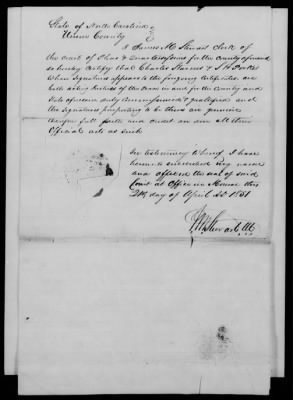 State of North Carolina
Union County
I James M Stewart Clerk of
the Court of Pleas & Quar Sessions for the County aforesaid
do hereby certify that Charles Starnes &
Whose Signatures appears to the foregoing Certificates are
both acting Justices of the Peace in and for the County and
State aforesaid duly Commissioned & qualified and
the signatures purporting to be theirs are genuine
full faith and credit are due all their
Official acts as such
In testimony whereof I have
hereunto subscribed my name
and affixed the seal of said
Court at Office in Monroe this
day of April AD 1851
J M Stewart Clk